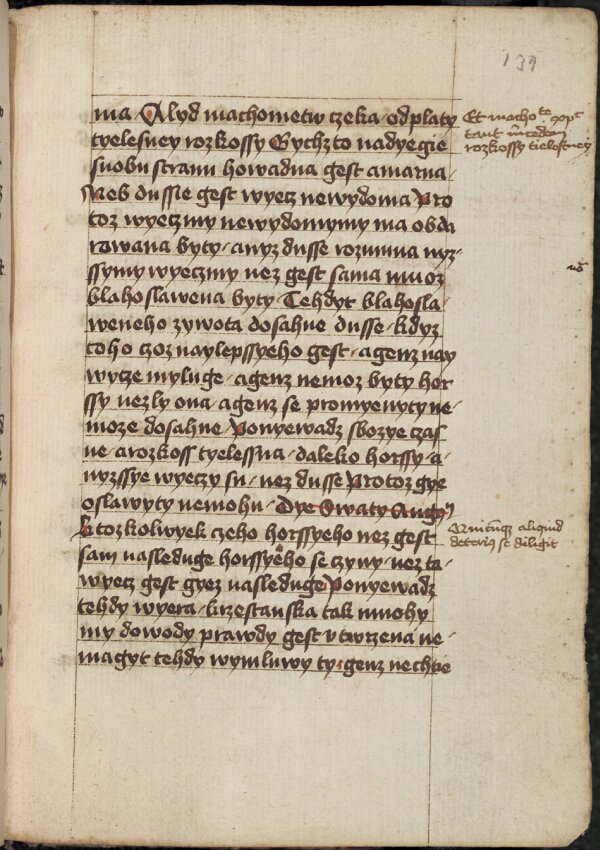 139
ma / A lyd machometw czeka odplaty
tyelesney rozkossy Bychzto nadyegie
swobu stranu howadna gest amarna /
Neb dussie gest wyecz newydoma Pro
toz wyeczmy newydomymy ma obda
rowana byty / anyz dusse rozumna nyz /
ssymy wyeczmy nez gest sama muoz
blahoslawena byty / Tehdyt blahosla /
weneho zywota dosahne dusse / kdyz
toho czoz naylepssyeho gest / agenz nay
wycze myluge / agenz nemoz byty hor
ssy nezly ona / agenz se promyenyty ne /
moze dosahne / Ponyewadz sbozye czas
ne / arozkoss tyelessna / daleko horssy / a /
nyzssye wyeczy su / nez dusse Protoz gye
oslawyty nemohu / Dye Swaty Augu
Ktozkolwyek czeho horssyeho nez gest
sam nasleduge horssyeho se czyny / nez ta /
wyecz gest gyez nasleduge Ponyewadz
tehdy wyera / krzestanska tak mnohy
my dowody prawdy gest vtwrzena ne /
magyt tehdy wymluwy ty / genz nechtie
Et macho
rozkossy tielestney
aliquid
deterius se diligit